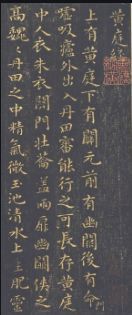 黄庭經
上有黄庭下有關元前有幽闕後有命門
噓吸廬外出入丹田審能行之可長存黄庭
中人衣朱衣關門壯籥蓋兩扉幽闕俠之
高巍巍丹田之中精氣微玉池清水上主肥靈